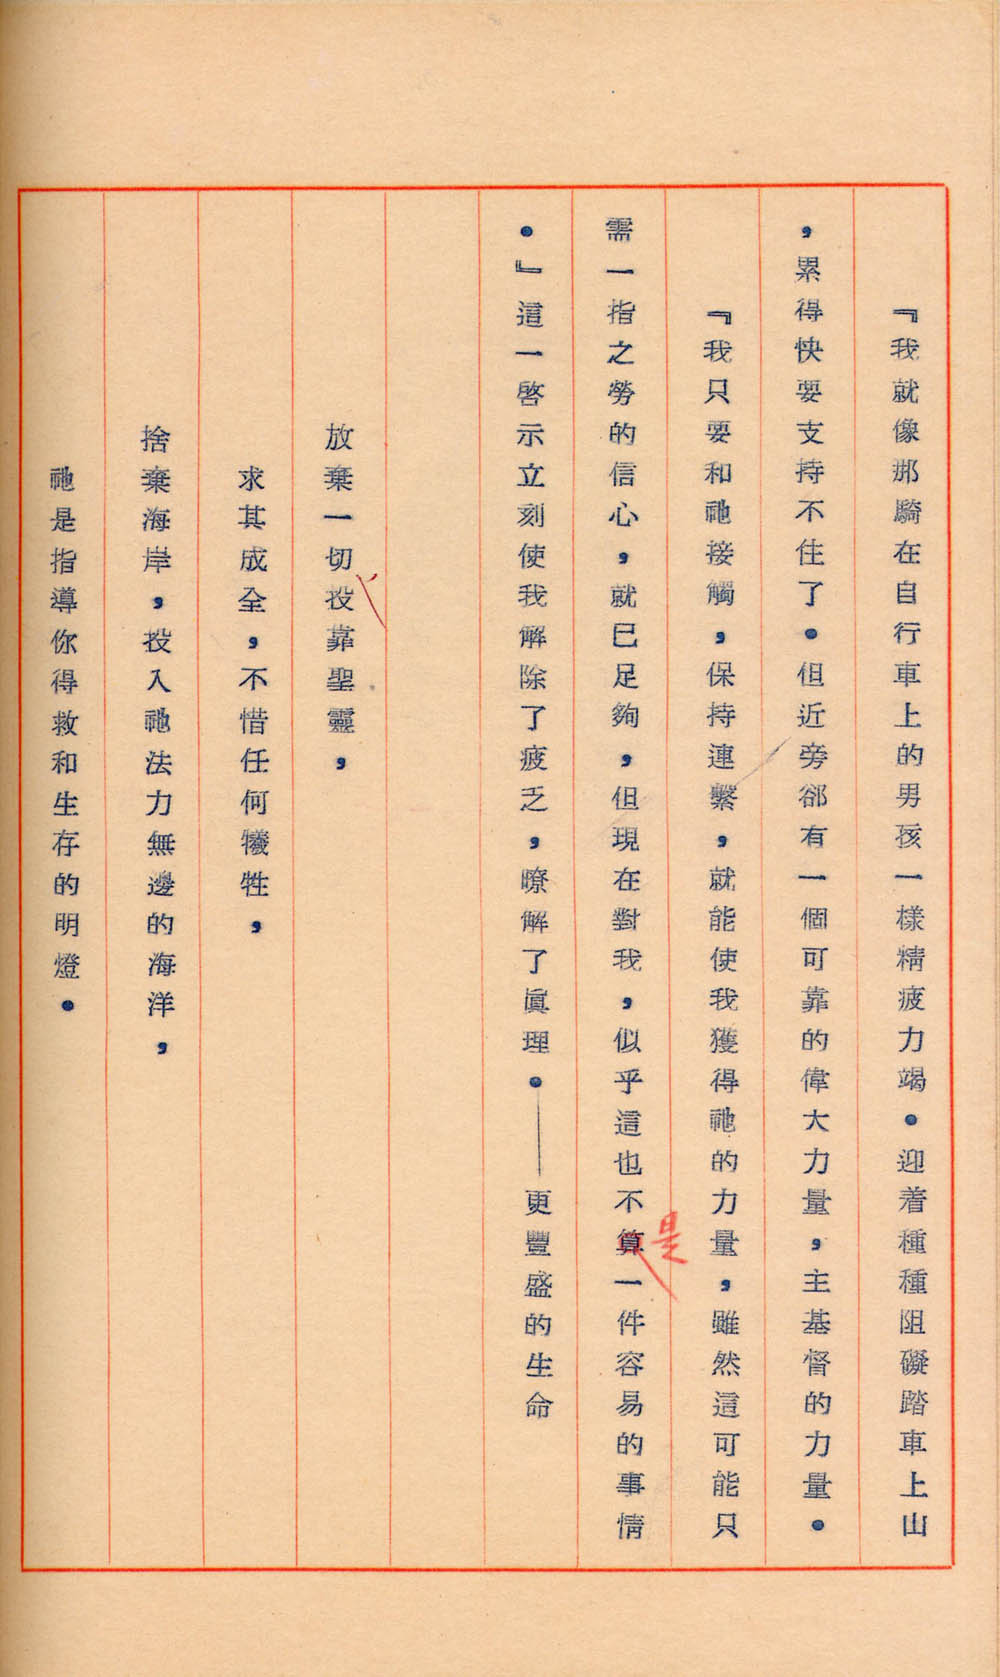 『我就像那騎在自行車上的男孩一樣精疲力竭。迎着種種阻礙踏車上山
，累得快要支持不住了。但近旁郤有一個可靠的偉大力量，主基督的力量。
『我只要和祂接觸，保持連繫，就能使我獲得祂的力量，雖然這可能只
需一指之勞的信心，就已足夠，但現在對我，似乎這也不算一件容易的事情
是
。』這一啓示立刻使我解除了疲乏，暸解了眞理。——更豐盛的生命
放棄一切投靠聖靈，
求其成全，不惜任何犧牲，
捨棄海岸，投入祂法力無邊的海洋，
祂是指導你得救和生存的明燈。